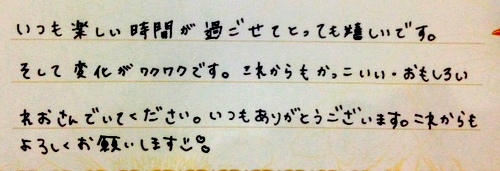 いつも楽しい時間が過ごせてとっても嬉しいです。
そして変化がワクワクです。これからもかっこいい・おもしろい
れおさんでいてください。いつもありがとうございます。これからも
よろしくお願いします